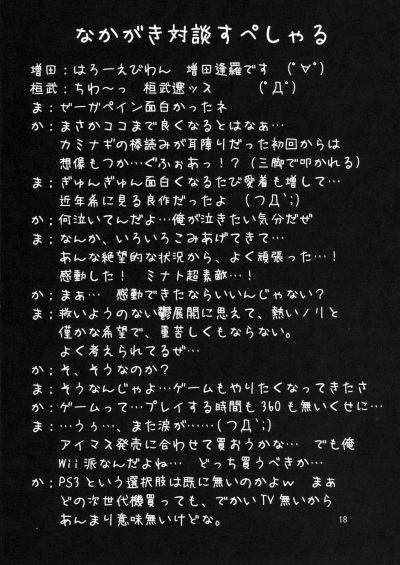 なかがき対談すぺしゃる
増田：はろーえびわん　増田逢羅です　(ﾟ∀ﾟ)
桓武：ちわ～っ　桓武遼ッス　　(ﾟДﾟ)
ま：ゼーガペイン面白かったネ
か：まさかココまで良くなるとはなぁ…
カミナギの棒読みが耳障りだった初回からは
想像もつか…ぐふぉあっ！？（三脚で叩かれる）
ま：ぎゅんぎゅん面白くなるたび愛着も増して…
近年希に見る良作だったよ　（つД`；）
か：何泣いてんだよ…俺が泣きたい気分だぜ
ま：なんか、いろいろこみあげてきて…
あんな絶望的な状況から、よく頑張った…！
感動した！　ミナト超素敵…！
か：まぁ…　感動できたならいいんじゃない？
ま：救いようのない鬱展開に思えて、熱いノリと
僅かな希望で、重苦しくもならない。
よく考えられてるぜ…
か：そ、そうなのか？
ま：そうなんじゃよ…ゲームもやりたくなってきたさ
か：ゲームって…プレイする時間も360も無いくせに…
ま：…うぅ…、また涙が……（つД`；）
アイマス発売に合わせて買おうかな…　でも俺
Wii派なんだよね…　どっち買うべきか…
か：PS3という選択肢は既に無いのかよｗ　まぁ
どの次世代機買っても、でかいTV無いから
あんまり意味無いけどな。
18